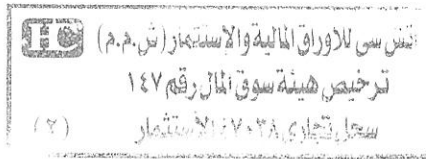 اتش سى للاوراق المالية والاستثمار (ش.م.م) HC
ترخيص هيئة سوق المال رقم ١٤٧
سجل تجارى الاستثمار (٢)